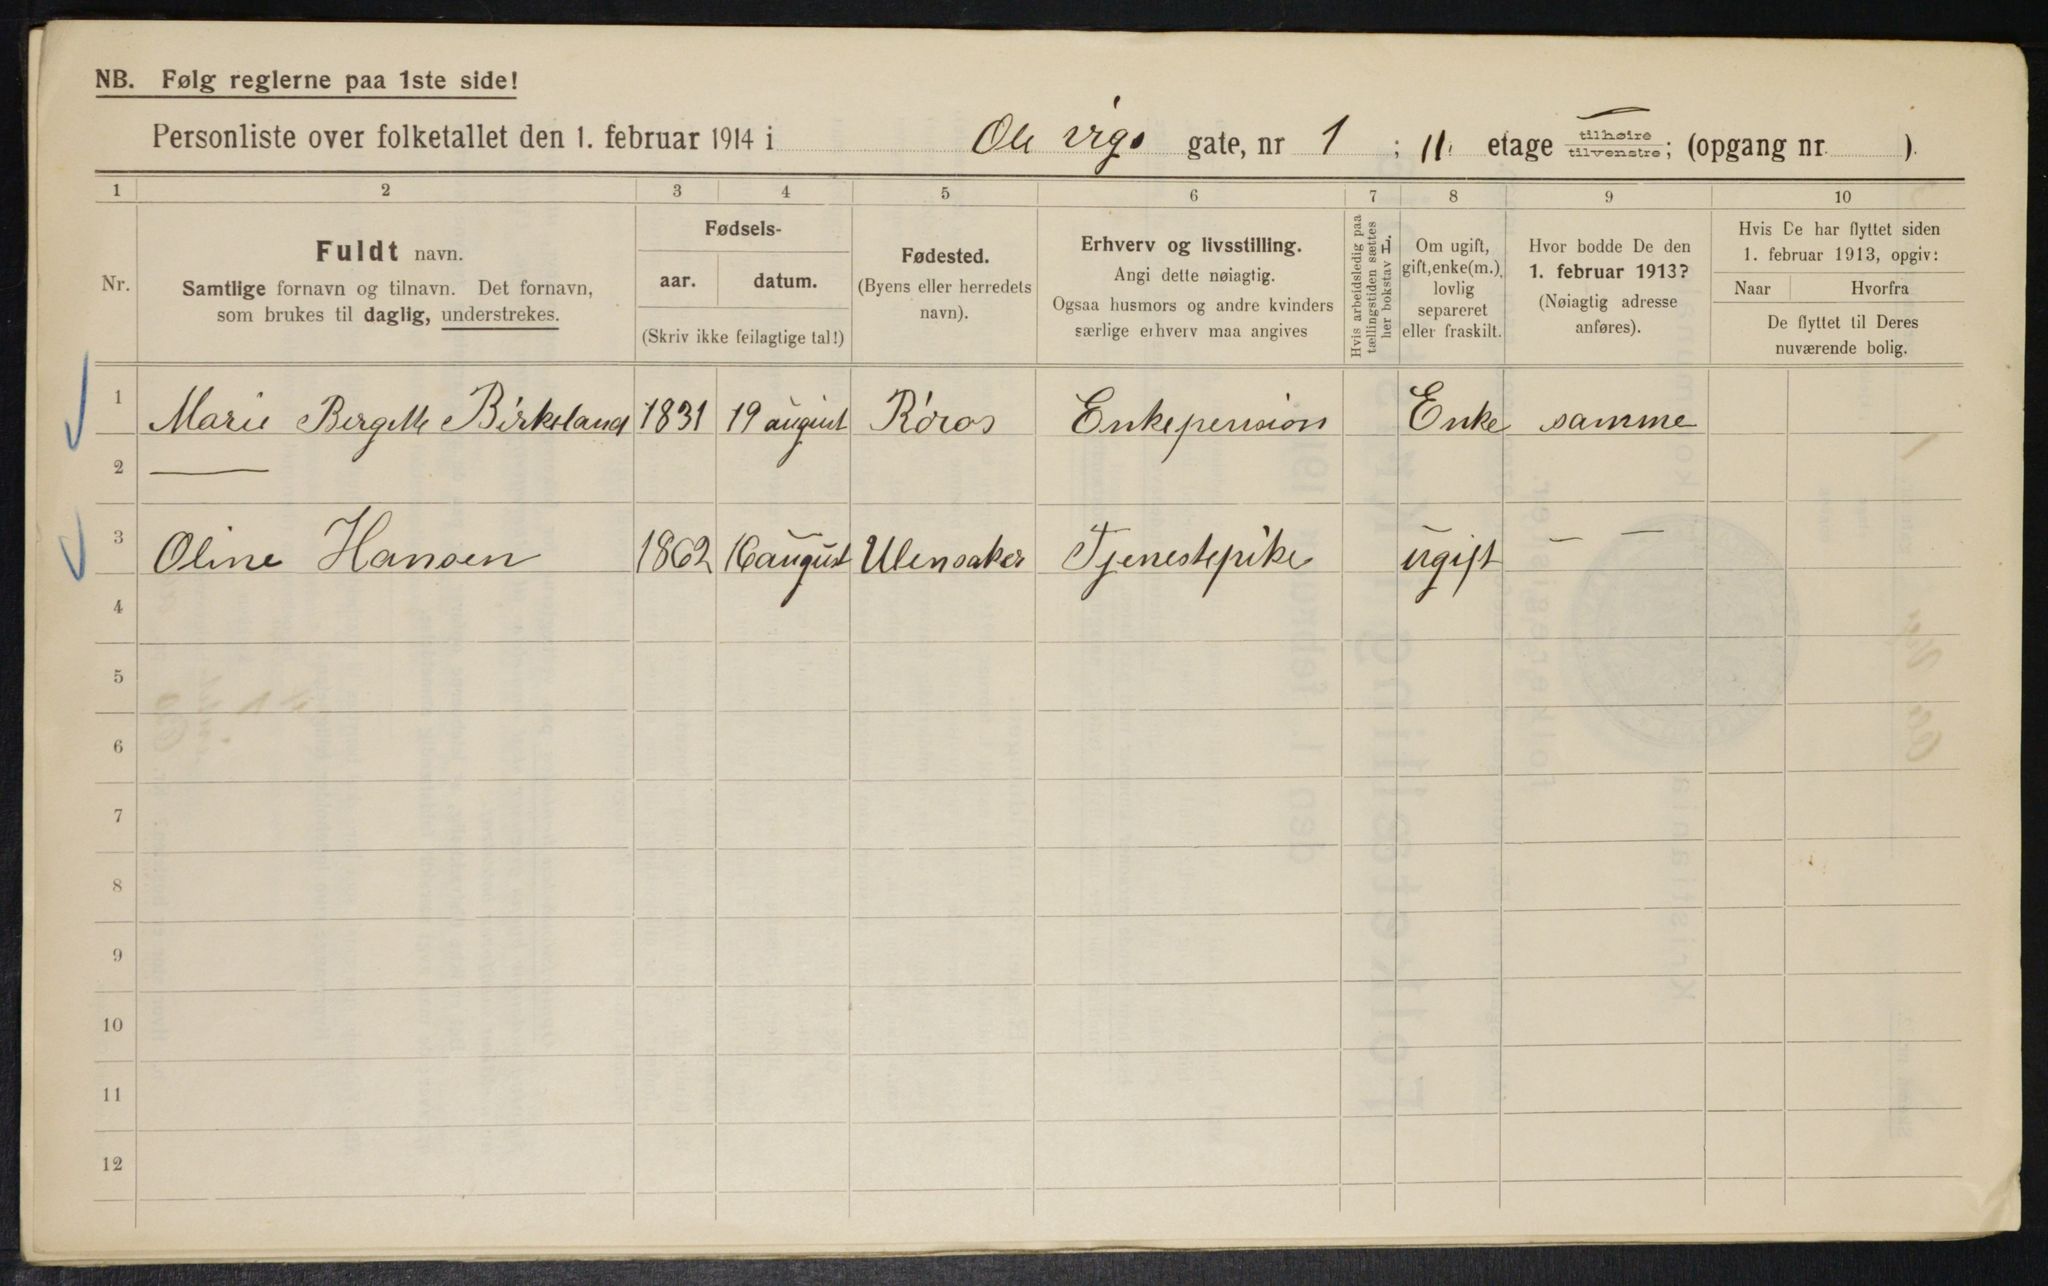 NB. Følg reglerne paa 1ste side!
Personliste over folketallet den 1. februar 1914 i Ole Vigs gate, nr 1 ; II. etage tilhøire tilvenstre ; (opgang nr. ).
1 2 3 4 5 6 7 8 9 10
Nr.
Fuldt navn.
Samtlige fornavn og tilnavn. Det fornavn,
som brukes til daglig, understrekes.
Fødsels-
aar. datum.
(Skriv ikke feilagtige tal!)
Fødested.
(Byens eller herredets
navn).
Erhverv og livsstilling.
Angi dette nøiagtig.
Ogsaa husmors og andre kvinders
særlige erhverv maa angives
Hvis arbeidsledig paa
tællingstiden sættes
her bokstav L.
Om ugift,
gift, enke(m.),
lovlig
separeret
eller fraskilt.
Hvor bodde De den
1. februar 1913?
(Nøiagtig adresse
anføres).
Hvis De har flyttet siden
1. februar 1913, opgiv:
Naar Hvorfra
De flyttet til Deres
nuværende bolig.
1 Marie Bergitte Birkeland 1831 19 august Røros Enkepension Enke samme
2
3 Oline Hansen 1862 16 august Ulensaker Tjenestepike ugift — —
4
5
6
7
8
9
10
11
12